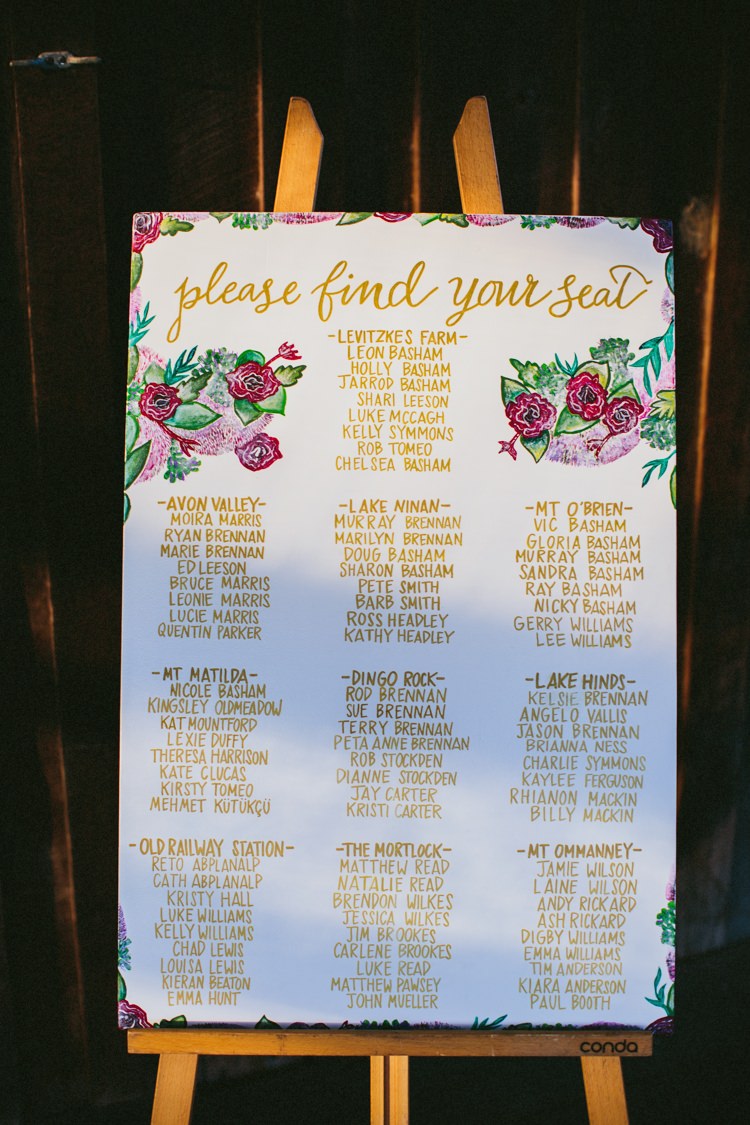 please find your seat
-LEVITZKES FARM-
LEON BASHAM
HOLLY BASHAM
JARROD BASHAM
SHARI LEESON
LUKE MCCAGH
KELLY SYMMONS
ROB TOMEO
CHELSEA BASHAM
-AVON VALLEY-
MOIRA MARRIS
RYAN BRENNAN
MARIE BRENNAN
ED LEESON
BRUCE MARRIS
LEONIE MARRIS
LUCIE MARRIS
QUENTIN PARKER
-LAKE NINAN-
MURRAY BRENNAN
MARILYN BRENNAN
DOUG BASHAM
SHARON BASHAM
PETE SMITH
BARB SMITH
ROSS HEADLEY
KATHY HEADLEY
-MT O'BRIEN-
VIC BASHAM
GLORIA BASHAM
MURRAY BASHAM
SANDRA BASHAM
RAY BASHAM
NICKY BASHAM
GERRY WILLIAMS
LEE WILLIAMS
-MT MATILDA-
NICOLE BASHAM
KINGSLEY OLDMEADOW
KAT MOUNTFORD
LEXIE DUFFY
THERESA HARRISON
KATE CLUCAS
KIRSTY TOMEO
MEHMET KÜTÜKÇÜ
-DINGO ROCK-
ROD BRENNAN
SUE BRENNAN
TERRY BRENNAN
PETA ANNE BRENNAN
ROB STOCKDEN
DIANNE STOCKDEN
JAY CARTER
KRISTI CARTER
-LAKE HINDS-
KELSIE BRENNAN
ANGELO VALLIS
JASON BRENNAN
BRIANNA NESS
CHARLIE SYMMONS
KAYLEE FERGUSON
RHIANON MACKIN
BILLY MACKIN
-OLD RAILWAY STATION-
RETO ABPLANALP
CATH ABPLANALP
KRISTY HALL
LUKE WILLIAMS
KELLY WILLIAMS
CHAD LEWIS
LOUISA LEWIS
KIERAN BEATON
EMMA HUNT
-THE MORTLOCK-
MATTHEW READ
NATALIE READ
BRENDON WILKES
JESSICA WILKES
JIM BROOKES
CARLENE BROOKES
LUKE READ
MATTHEW PAWSEY
JOHN MUELLER
-MT OMMANNEY-
JAMIE WILSON
LAINE WILSON
ANDY RICKARD
ASH RICKARD
DIGBY WILLIAMS
EMMA WILLIAMS
TIM ANDERSON
KIARA ANDERSON
PAUL BOOTH
conda